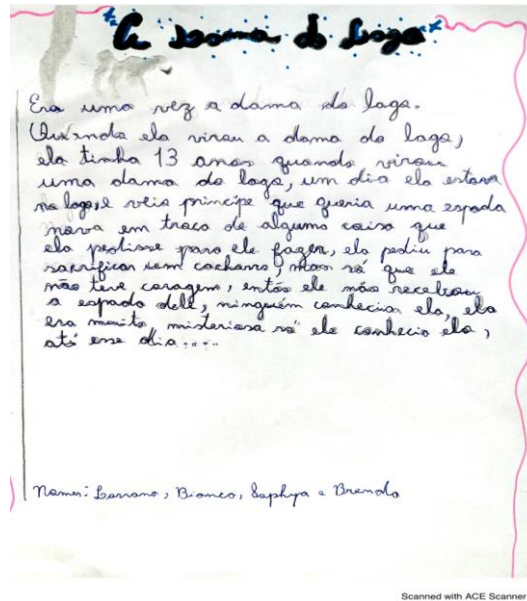 A Dama do Lago
Era uma vez a dama do lago.
Quando ela virou a dama do lago,
ela tinha 13 anos quando virou
uma dama do lago, um dia ela estava
no lago,e veio principe que queria uma espada
nova em troca de alguma coisa que
ela pedisse para ele fazer, ela pediu para
sacrificar um cachorro, mas só que ele
não teve coragem, então ele não recebeu
a espada dele, ninguém conhecia ela, ela
era muito, misteriosa só ele conhecia ela,
até esse dia....
Nomes: Lorrana, Bianca, Sophya e Brenda
Scanned with ACE Scanner